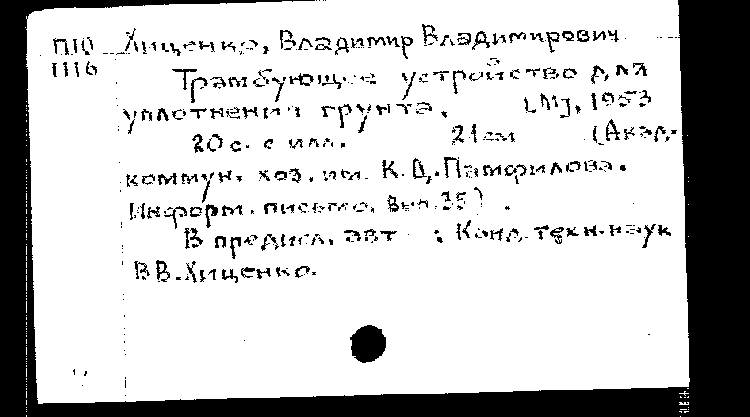 П10 Хищенко, Владимир Владимирович
1116
Трамбующее устройство для
уплотнения грунта. [М], 1953
20 с. с илл. 21 см (Акад.
коммун. хоз. им. К.Д. Памфилова.
Информ. письмо. Вып. 35).
В предисл. авт : Канд. техн. наук
В В. Хищенко.